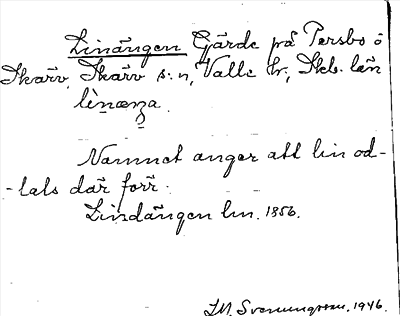 Linängen Gärde på Persbo ö
Skärv, Skärv s:n, Valle hr., Skb. län
lìnæŋa
Namnet anger att lin od-
-lats där förr.
Lindängen lm. 1856.
S.M. Svenungsson, 1946.